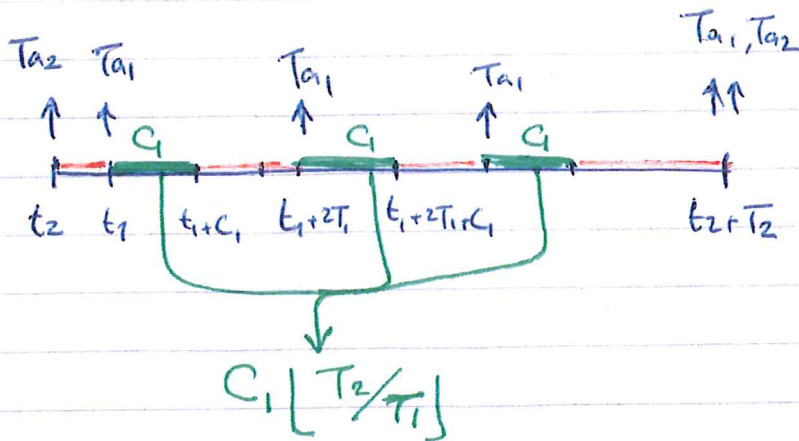 Ta2 Ta1 Ta1 Ta1 Ta1, Ta2
C1 C1 C1
t2 t1 t1+C1 t1+2T1 t1+2T1+C1 t2+T2
C1 ⌊T2/T1⌋